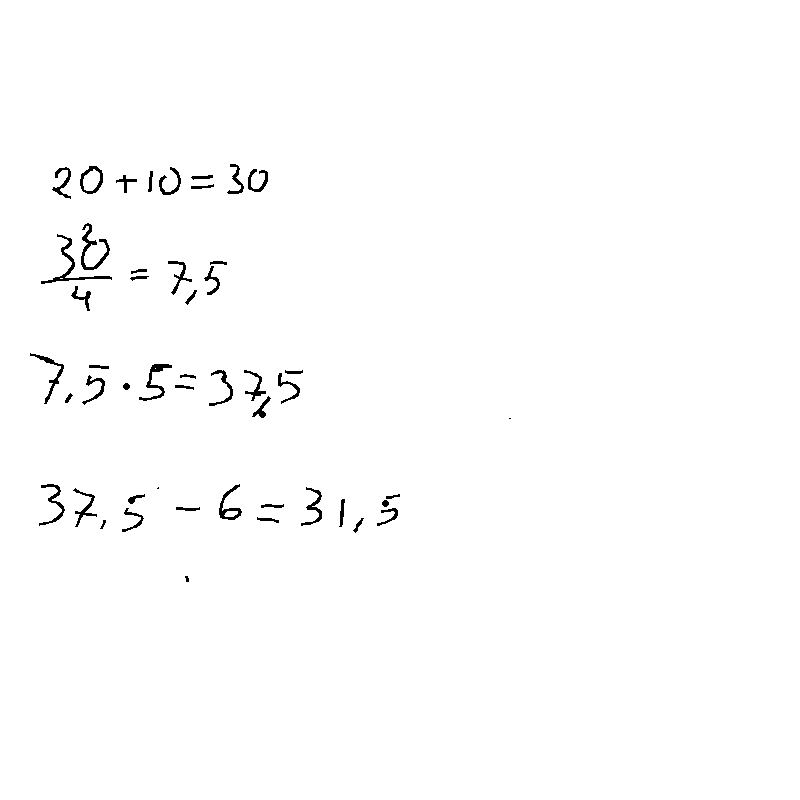 20 + 10 = 30
30/4 = 7,5
7,5 · 5 = 37,5
37,5 - 6 = 31,5